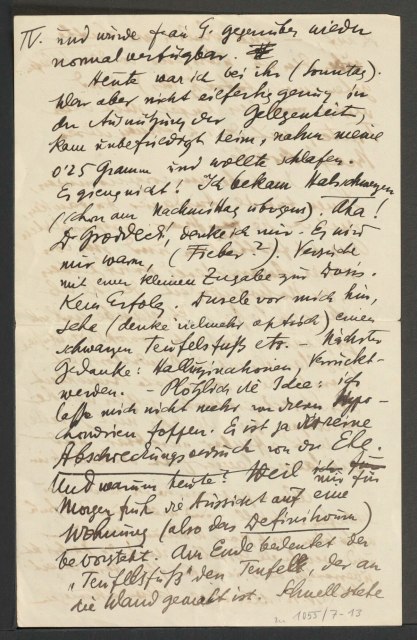 IV. und würde frau G. gegenüber wieder
normal verfügbar.
Heute war ich bei ihr (Sonntag).
War aber nicht eilfertig genug in
der Ausnützung der Gelegenheit,
kam unbefriedigt heim, nahm meine
0·25 Gramm und wollte schlafen.
Es gieng nicht! Ich bekam Halsschmerzen
(schon am Nachmittag übrigens). Aha!
Dr Groddeck, denke ich mir. Es wird
mir warm, (Fieber?). Versuche
mit einer kleinen Zugabe zur Dosis.
Kein Erfolg. Dusele vor mich hin,
sehe (denke vielmehr optisch) einen
schwarzen Teufelsfuß etc. – Nächster
Gedanke: Halluzinationen, Verrückt-
werden. – Plötzlich die Idee: ich
lasse mich nicht mehr von diesen Hypo-
chondrien foppen. Es ist ja das reine
Abschreckung von der Ehe.
Und warum heute? Weil mir für
Morgen früh die Aussicht auf eine
Wohnung (also das Definitivum)
bevorsteht. Am Ende bedeutet der
„Teufelsfuß" den Teufel, der an
die Wand gemalt ist. Schnell stehe
1055/7-13